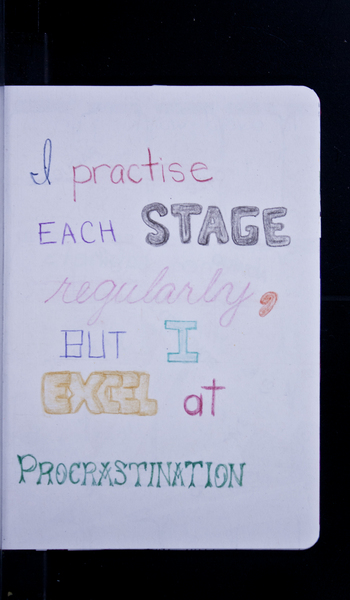 I practise
EACH STAGE
regularly,
BUT I
EXCEL at
PROCRASTINATION